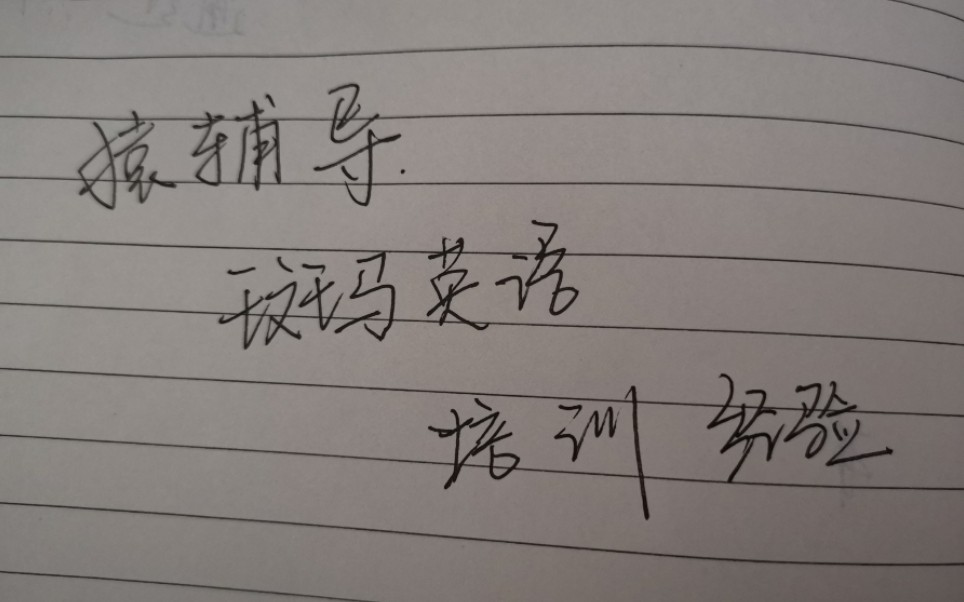 猿辅导.
斑玛英语
培训经验